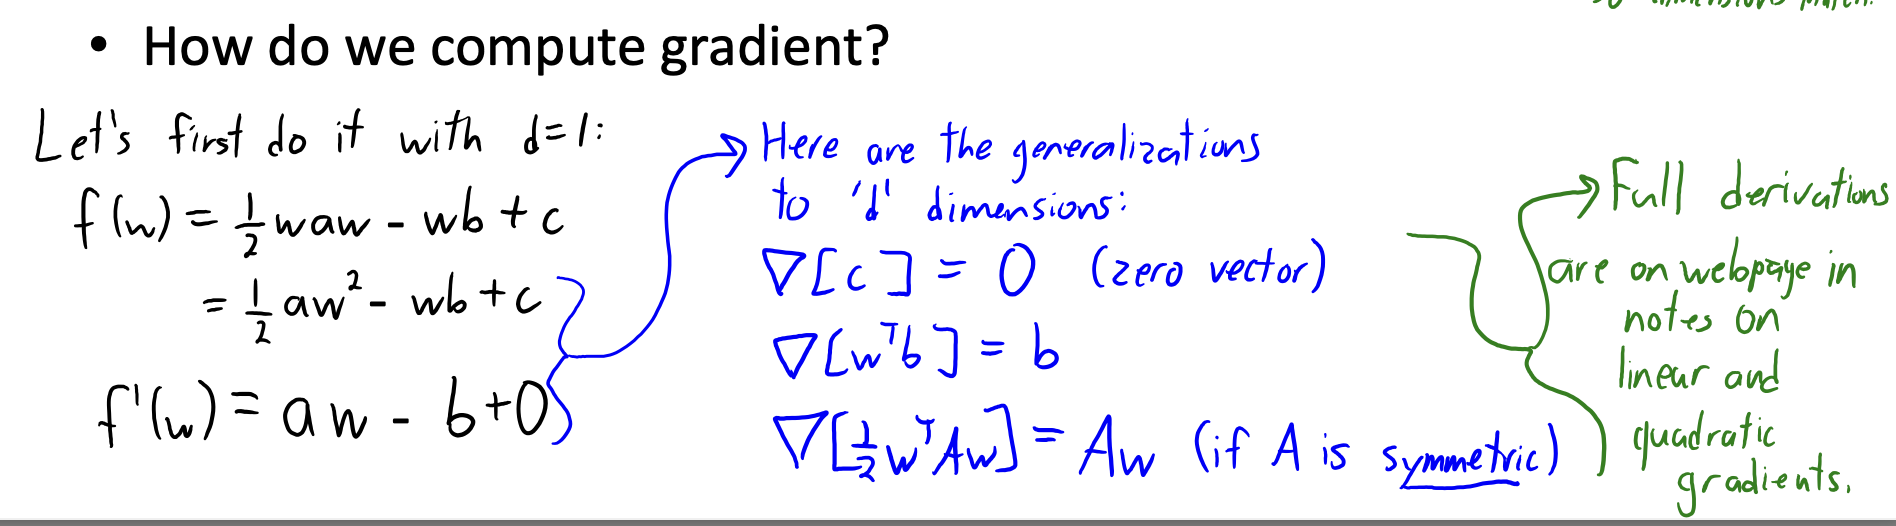 • How do we compute gradient?
Let's first do it with d=1:
f(w) = 1/2 waw - wb + c
= 1/2 aw² - wb + c
f'(w) = aw - b + 0
Here are the generalizations
to 'd' dimensions:
∇[c] = 0 (zero vector)
∇[wᵀb] = b
∇[1/2 wᵀAw] = Aw (if A is symmetric)
Full derivations
are on webpage in
notes on
linear and
quadratic
gradients.